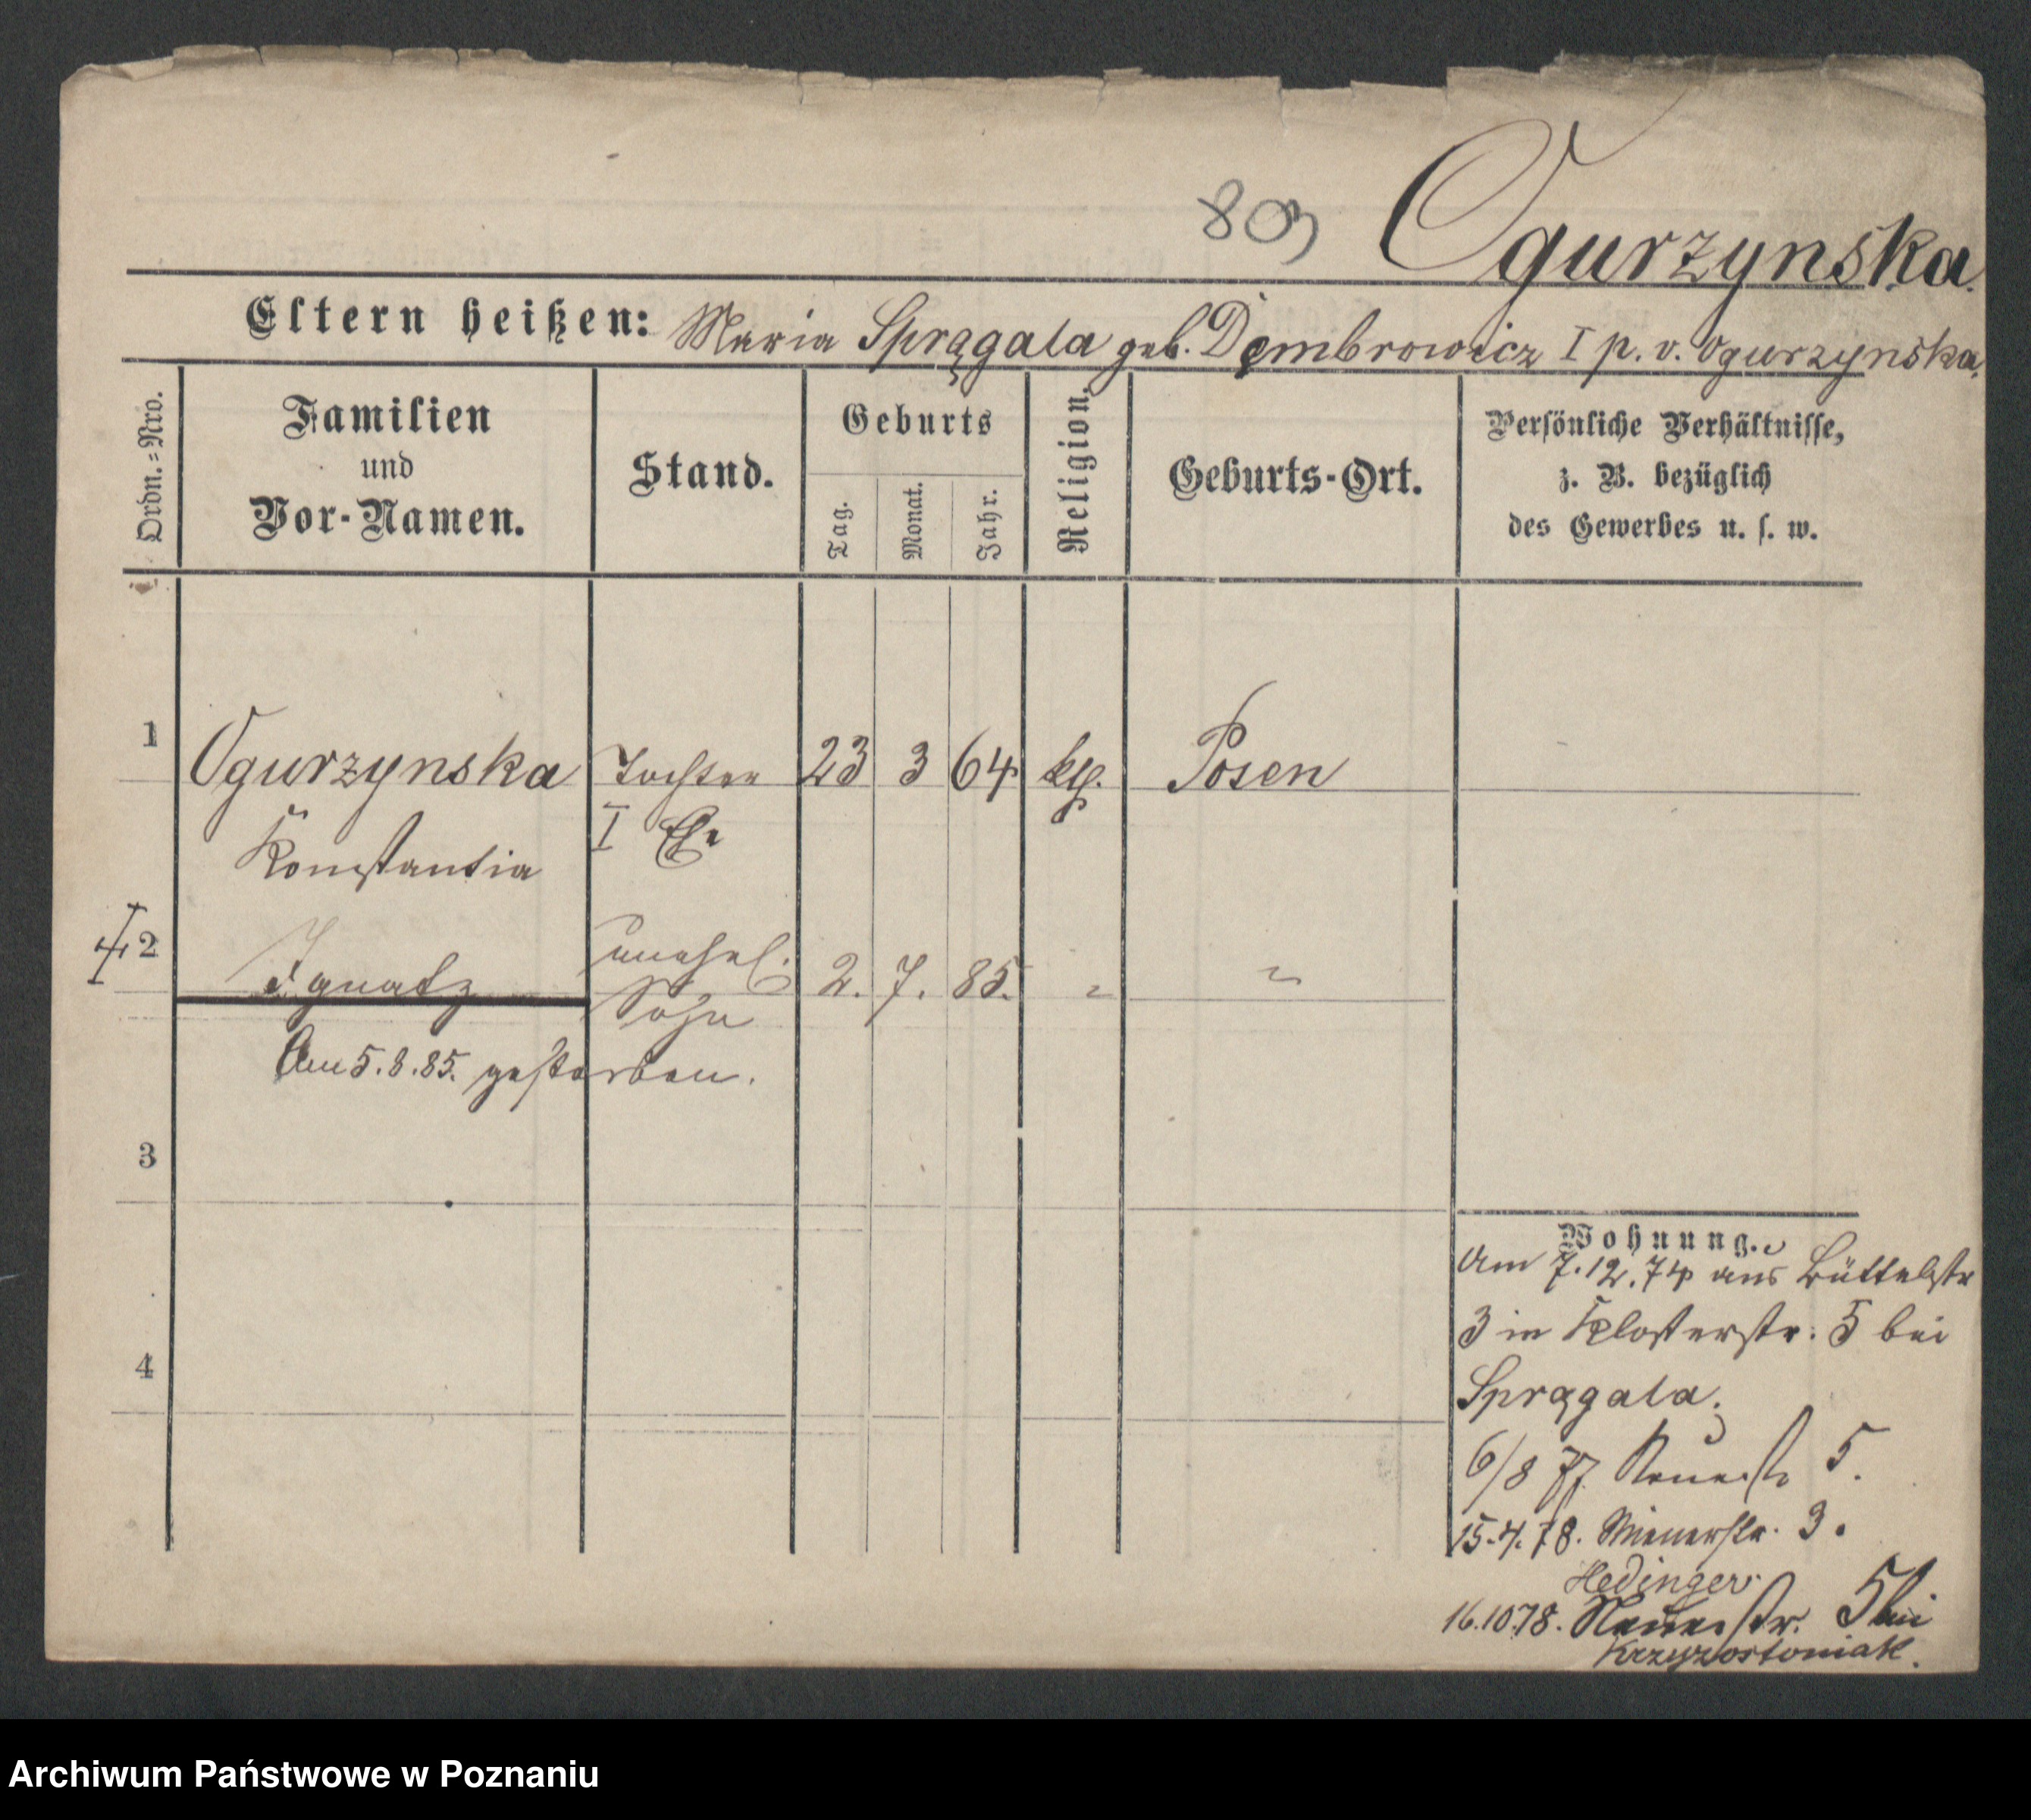 809
Ogurzynska.
Eltern heißen: Maria Sprągala geb. Dembrowicz I p. v. Ogurzynska.
Ordn.=Nro.
Familien
und
Vor-Namen.
Stand.
Geburts
Tag.
Monat.
Jahr.
Religion.
Geburts-Ort.
Persönliche Verhältnisse,
z. B. bezüglich
des Gewerbes u. s. w.
1 Ogurzynska Tochter 23 3 64 kth. Posen
Konstantia I Ehe
2 Ignatz unehel. 2. 7. 85. " "
Sohn
Am 5.8.85. gestorben.
3
4
Wohnung.
Am 7.12.74 aus Büttelstr
3 in Klosterstr. 5 bei
Sprągala.
6/8 77. 5.
15.4.78. Wienerstr. 3.
Hedinger
16.10.78. str. 5 bei
Krzyzostoniak.
Archiwum Państwowe w Poznaniu